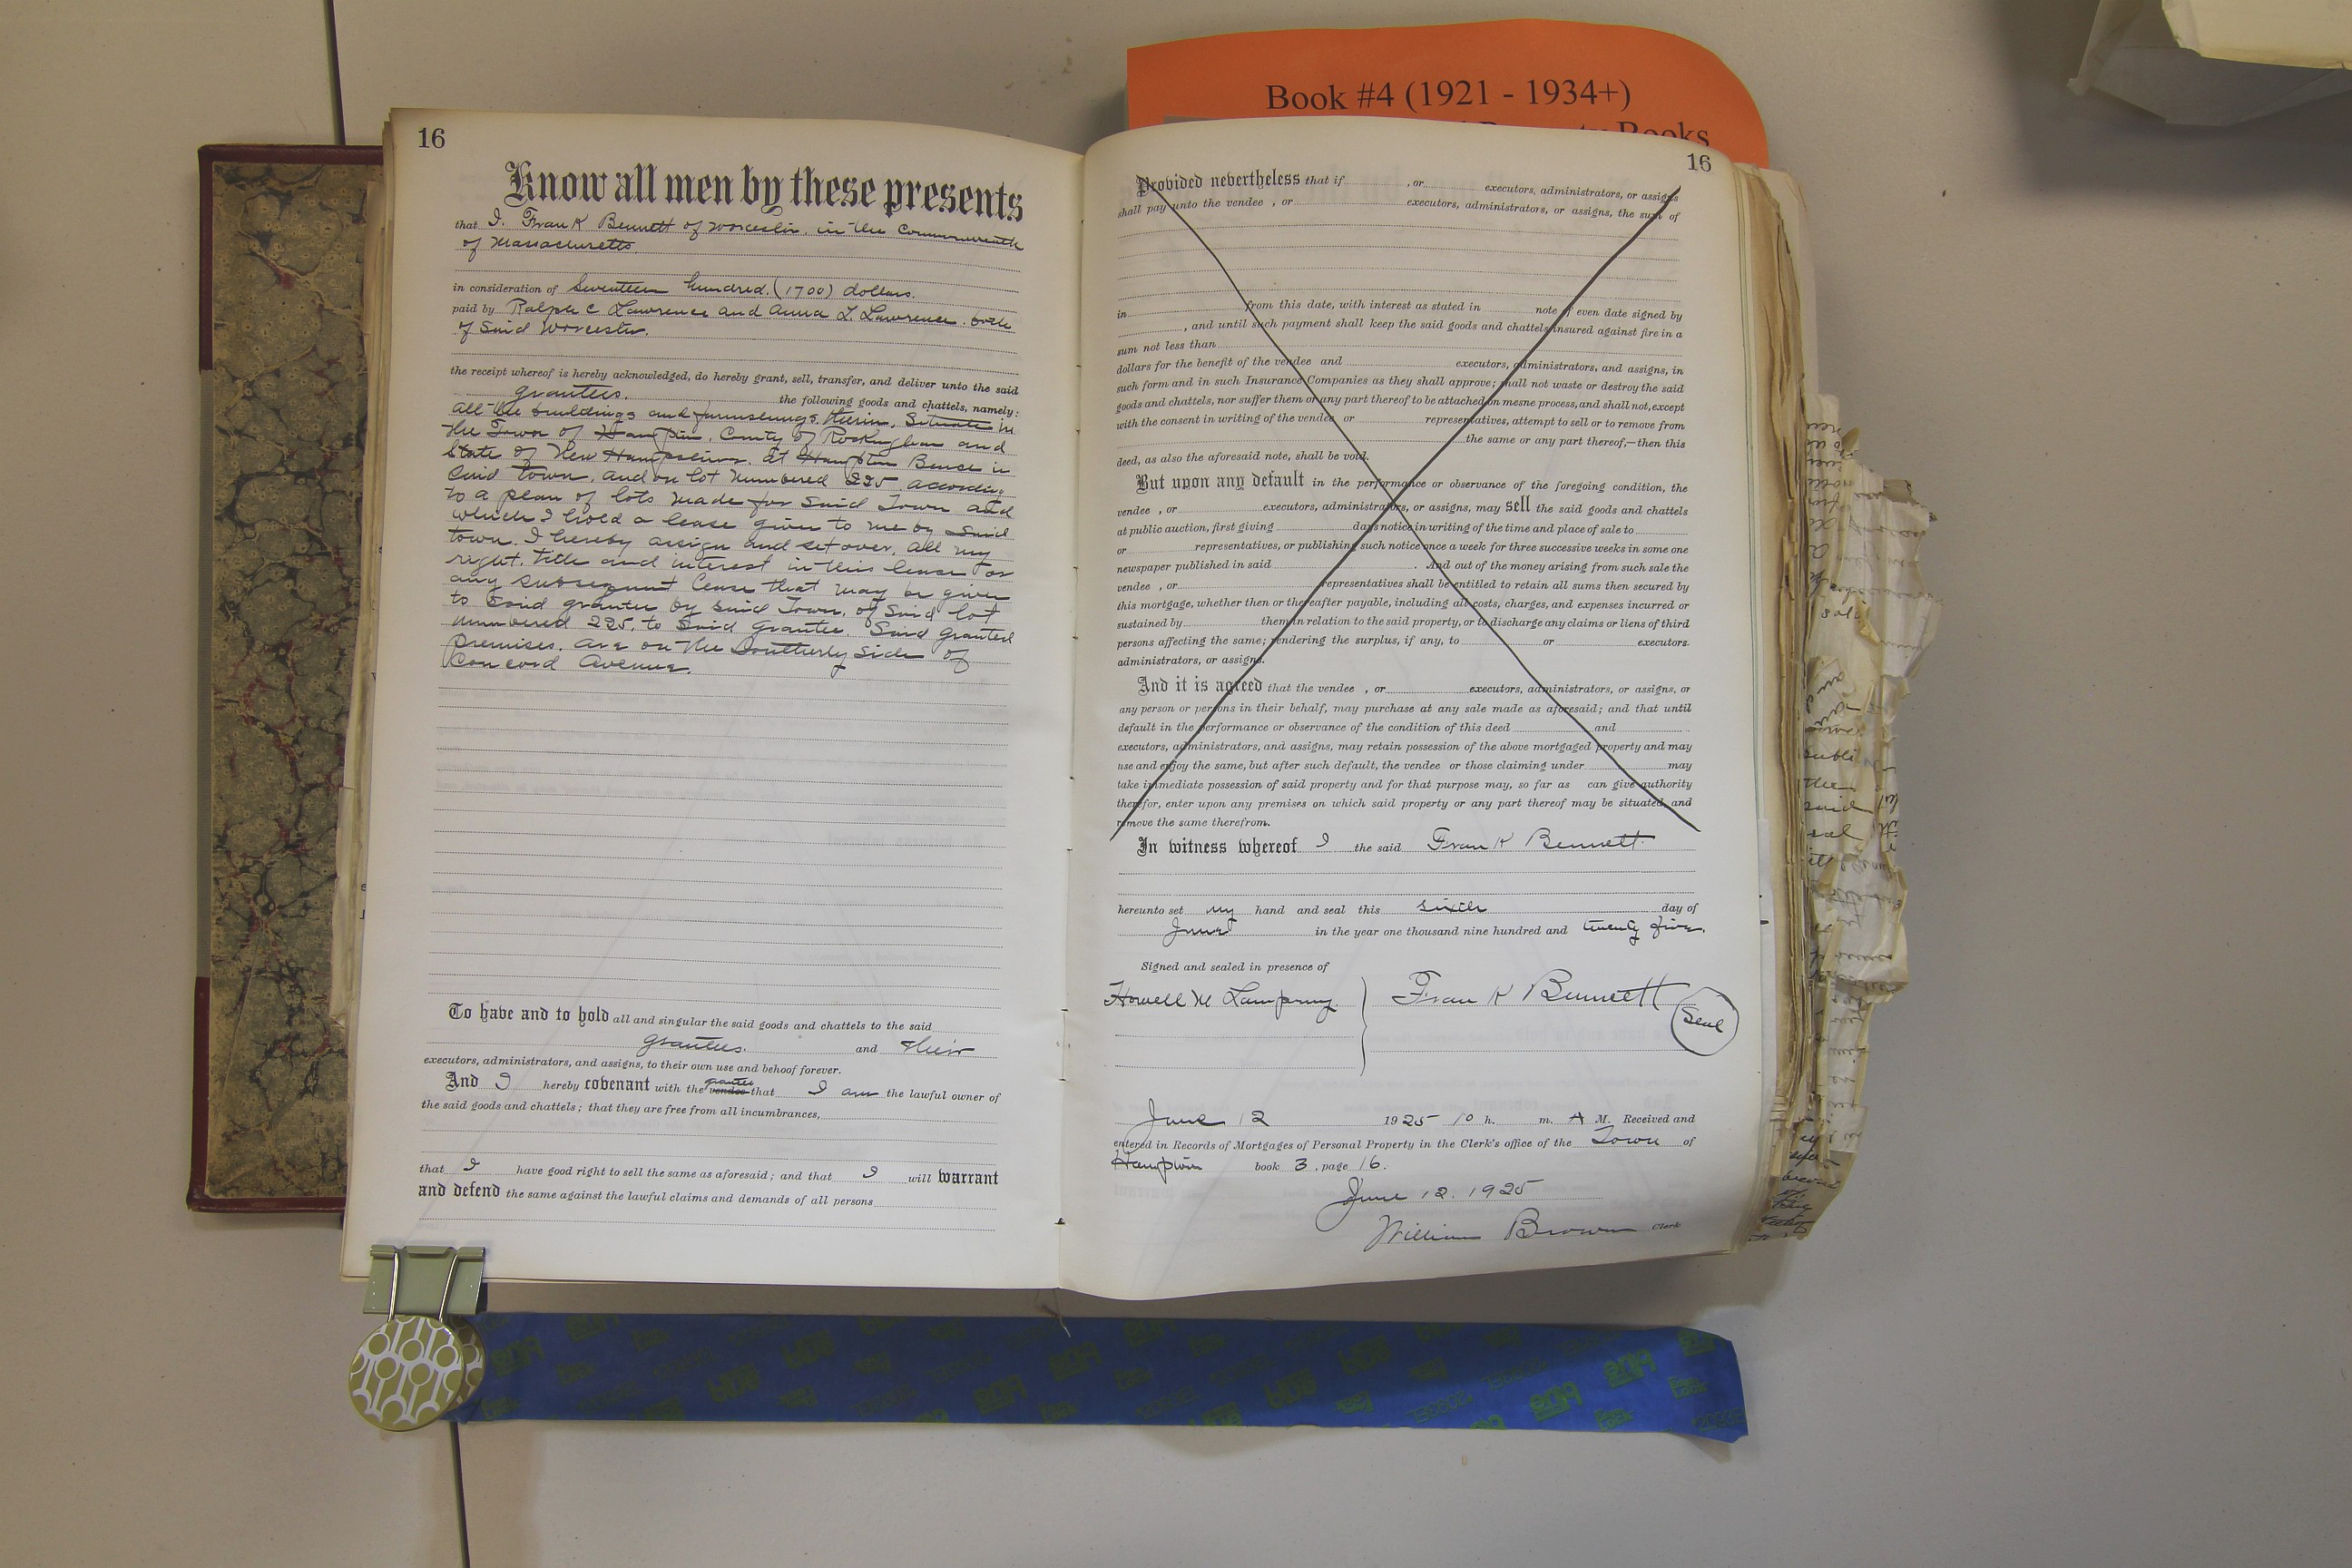 Book #4 (1921 - 1934+)
Books
16
Know all men by these presents
that I. Frank Bennett of Worcester, in the Commonwealth
of Massachusetts.
in consideration of Seventeen hundred (1700) dollars.
paid by Ralph C Lawrence and Anna L. Lawrence. both
of Said Worcester.
the receipt whereof is hereby acknowledged, do hereby grant, sell, transfer, and deliver unto the said
grantees. the following goods and chattels, namely:
all the buildings and furnishings therin, Situate in
the Town of Hampton, County of Rockingham and
State of New Hampshire. at Hampton Beach in
Said town, and on lot numbered 225 according
to a plan of lots made for Said Town and
which I hold a lease given to me by Said
town. I hereby assign and set over, all my
right, title and interest in this lease or
any subsequent lease that may be given
to Said grantee by Said Town, of Said lot
numbered 225, to Said Grantee. Said granted
premises. are on the Southerly side of
Concord Avenue.
To have and to hold all and singular the said goods and chattels to the said
grantees. and their
executors, administrators, and assigns, to their own use and behoof forever.
And I hereby covenant with the grantee vendee that I am the lawful owner of
the said goods and chattels; that they are free from all incumbrances,
that I have good right to sell the same as aforesaid; and that I will warrant
and defend the same against the lawful claims and demands of all persons
16
Provided nevertheless that if , or executors, administrators, or assigns
shall pay unto the vendee , or executors, administrators, or assigns, the sum of
in from this date, with interest as stated in note of even date signed by
, and until such payment shall keep the said goods and chattels insured against fire in a
sum not less than
dollars for the benefit of the vendee and executors, administrators, and assigns, in
such form and in such Insurance Companies as they shall approve; shall not waste or destroy the said
goods and chattels, nor suffer them or any part thereof to be attached on mesne process, and shall not, except
with the consent in writing of the vendee or representatives, attempt to sell or to remove from
the same or any part thereof,—then this
deed, as also the aforesaid note, shall be void.
But upon any default in the performance or observance of the foregoing condition, the
vendee , or executors, administrators, or assigns, may sell the said goods and chattels
at public auction, first giving days notice in writing of the time and place of sale to
or representatives, or publishing such notice once a week for three successive weeks in some one
newspaper published in said . And out of the money arising from such sale the
vendee , or representatives shall be entitled to retain all sums then secured by
this mortgage, whether then or thereafter payable, including all costs, charges, and expenses incurred or
sustained by them in relation to the said property, or to discharge any claims or liens of third
persons affecting the same; rendering the surplus, if any, to or executors.
administrators, or assigns.
And it is agreed that the vendee , or executors, administrators, or assigns, or
any person or persons in their behalf, may purchase at any sale made as aforesaid; and that until
default in the performance or observance of the condition of this deed and
executors, administrators, and assigns, may retain possession of the above mortgaged property and may
use and enjoy the same, but after such default, the vendee or those claiming under may
take immediate possession of said property and for that purpose may, so far as can give authority
therefor, enter upon any premises on which said property or any part thereof may be situated, and
remove the same therefrom.
In witness whereof I the said Frank Bennett
hereunto set my hand and seal this sixth day of
June in the year one thousand nine hundred and twenty five.
Signed and sealed in presence of
Howell M Lamprey Frank Bennett
Seal
June 12 1925 10 h. m. A M. Received and
entered in Records of Mortgages of Personal Property in the Clerk's office of the Town of
Hampton book 3, page 16.
June 12. 1925
William Brown Clerk